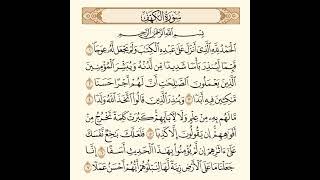 سُورَةُ الكَهْفِ
بِسْمِ ٱللَّهِ ٱلرَّحْمَٰنِ ٱلرَّحِيمِ
ٱلْحَمْدُ لِلَّهِ ٱلَّذِىٓ أَنزَلَ عَلَىٰ عَبْدِهِ ٱلْكِتَٰبَ وَلَمْ يَجْعَل لَّهُۥ عِوَجَا ۝١
قَيِّمًا لِّيُنذِرَ بَأْسًا شَدِيدًا مِّن لَّدُنْهُ وَيُبَشِّرَ ٱلْمُؤْمِنِينَ
ٱلَّذِينَ يَعْمَلُونَ ٱلصَّٰلِحَٰتِ أَنَّ لَهُمْ أَجْرًا حَسَنًا ۝٢
مَّٰكِثِينَ فِيهِ أَبَدًا ۝٣ وَيُنذِرَ ٱلَّذِينَ قَالُوا۟ ٱتَّخَذَ ٱللَّهُ وَلَدًا ۝٤
مَّا لَهُم بِهِۦ مِنْ عِلْمٍ وَلَا لِءَابَآئِهِمْ كَبُرَتْ كَلِمَةً تَخْرُجُ مِنْ
أَفْوَٰهِهِمْ إِن يَقُولُونَ إِلَّا كَذِبًا ۝٥ فَلَعَلَّكَ بَٰخِعٌ نَّفْسَكَ
عَلَىٰٓ ءَاثَٰرِهِمْ إِن لَّمْ يُؤْمِنُوا۟ بِهَٰذَا ٱلْحَدِيثِ أَسَفًا ۝٦ إِنَّا
جَعَلْنَا مَا عَلَى ٱلْأَرْضِ زِينَةً لَّهَا لِنَبْلُوَهُمْ أَيُّهُمْ أَحْسَنُ عَمَلًا ۝٧